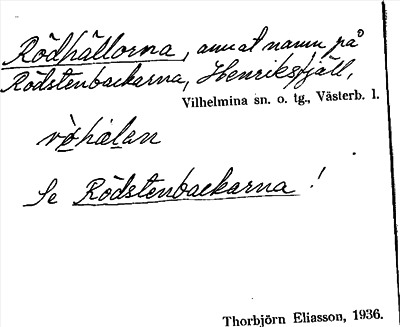 Rödhällorna, annat namn på
Rödstenbackarna, Henriksfjäll,
Vilhelmina sn. o. tg., Västerb. l.
Se Rödstenbackarna!
Thorbjörn Eliasson, 1936.